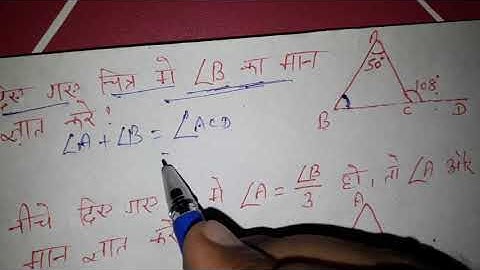 दिए गए चित्र में ∠B का मान
ज्ञात करें:
∠A + ∠B = ∠ACD
A
50°
108°
B
C
D
नीचे दिए गए में ∠A = ∠B/3 हो, तो ∠A और
मान ज्ञात करें
A